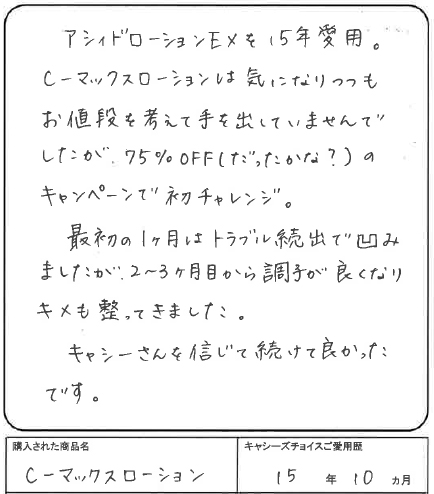 アシィドローションEXを15年愛用。
C-マックスローションは気になりつつも
お値段を考えて手を出していませんで
したが、75%OFF(だったかな?)の
キャンペーンで初チャレンジ。
最初の1ヶ月はトラブル続出で凹み
ましたが、2〜3ヶ月目から調子が良くなり
キメも整ってきました。
キャシーさんを信じて続けて良かった
です。
購入された商品名
キャシーズチョイスご愛用歴
C-マックスローション
15年10ヵ月